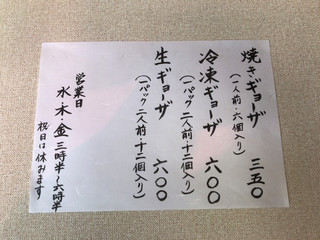 焼きギョーザ 三五〇
(一人前・六個入り)
冷凍ギョーザ 六〇〇
(一パック 二人前・十二個入り)
生ギョーザ 六〇〇
(一パック 二人前・十二個入り)
営業日
水・木・金 三時半〜六時半
祝日は休みます